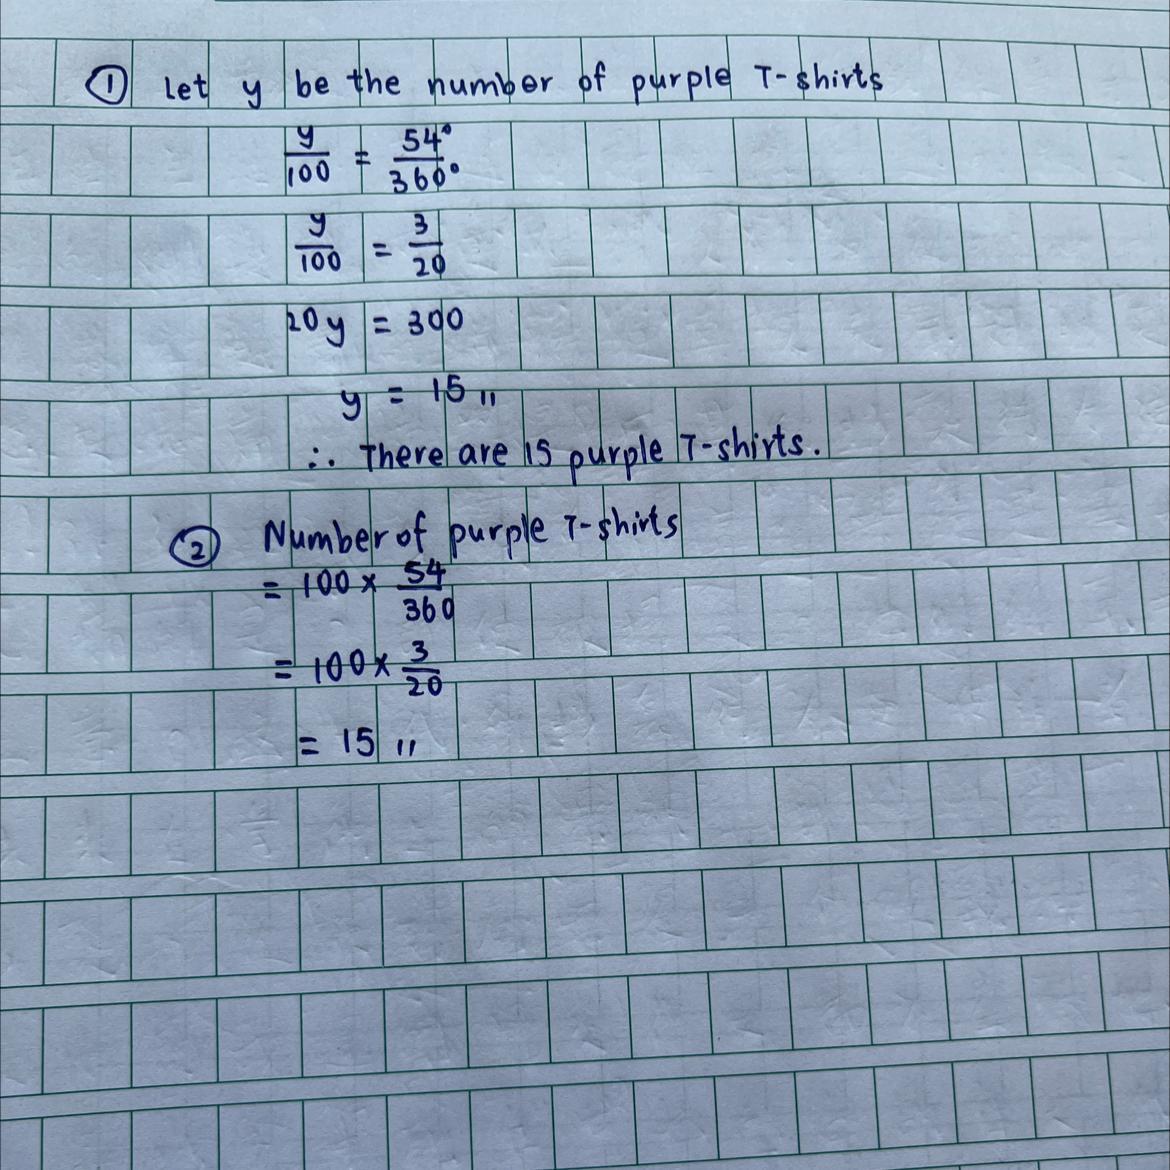 ① Let y be the number of purple T-shirts
y/100 = 54°/360°
y/100 = 3/20
20y = 300
y = 15 ,,
∴ There are 15 purple T-shirts.
② Number of purple T-shirts
= 100 × 54/360
= 100 × 3/20
= 15 ,,